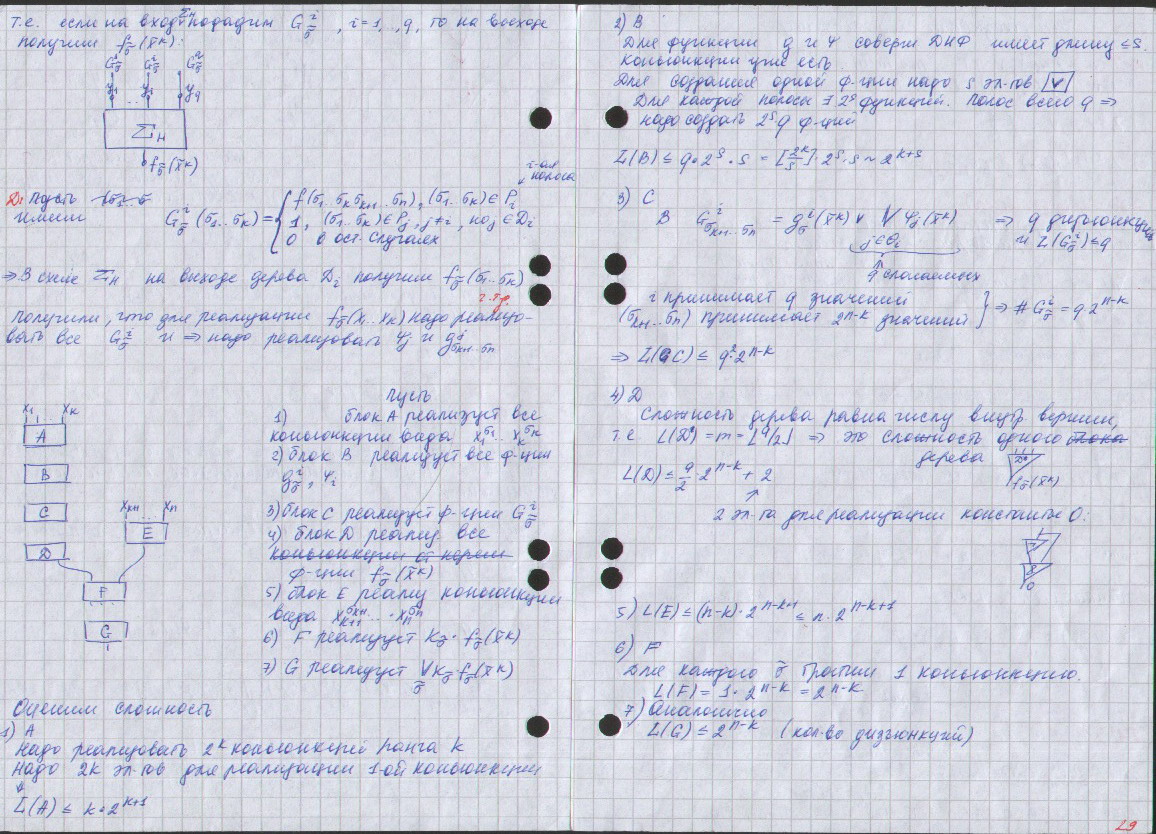 т.е. если на вход Σн подадим G^i_σ̃ , i = 1, .., q, то на выходе
получим f_σ̃(x̃^k):
G^1_σ̃ G^i_σ̃ G^q_σ̃
y1 ... yi yq
Σн
f_σ̃(x̃^k)
i-ая полоса
D: Пусть
имеем G^i_σ̃(σ1...σk) = { f(σ1..σk σk+1...σn), (σ1..σk) ∈ Pi
1, (σ1...σk) ∈ Pj, j≠i, но j ∈ Di
0 в ост. случаях
⇒ В схеме Σн на выходе дерева Di получим f_σ̃(σ1...σk)
ч.т.д.
получили, что для реализации f_σ̃(x1...xk) надо реализо-
вать все G^i_σ̃ и ⇒ надо реализовать ψj и g^i_σk+1...σn
x1 ... xk
A
B
C
D
xk+1 ... xn
E
F
G
Пусть
1) блок A реализует все
конъюнкции вида x1^σ1...xk^σk
2) блок B реализует все ф-ции
g^i_σ̃, ψi
3) блок C реализует ф-ции G^i_σ̃
4) блок D реализ все
конъюнкции от перем
ф-ции f_σ̃(x̃^k)
5) блок E реализ конъюнкции
вида xk+1^σk+1 ... xn^σn
6) F реализует K_σ̃ · f_σ̃(x̃^k)
7) G реализует ∨_σ̃ K_σ̃ · f_σ̃(x̃^k)
Оценим сложность
1) A
Надо реализовать 2^k конъюнкций ранга k
Надо 2k эл-тов для реализации 1-ой конъюнкции
⇓
L(A) ≤ k·2^(k+1)
2) B
Для функции g и ψ соверш ДНФ имеет длину ≤ s.
Конъюнкции уже есть
Для создания одной ф-ции надо s эл-тов ∨
Для каждой полосы ∃ 2^s функций. Полос всего q ⇒
надо создать 2^s q ф-ций
L(B) ≤ q·2^s·s = [2^k/s]·2^s·s ~ 2^(k+s)
3) C
В G^i_σk+1...σn = g^i_σ̃(x̃^k) ∨ ∨ ψj(x̃^k) ⇒ q дизъюнкций
j∈Di и L(G^i_σ̃) ≤ q
q слагаемых
i принимает q значений
(σk+1...σn) принимает 2^(n-k) значений } ⇒ # G^i_σ̃ = q·2^(n-k)
⇒ L(C) ≤ q²·2^(n-k)
4) D
Сложность дерева равна числу внутр вершин,
т.е L(D) = m = [q/2] ⇒ это сложность одного блока
дерева
f_σ̃(x̃^k)
L(D) ≤ q/2 · 2^(n-k) + 2
2 эл-та для реализации константы 0:
0
5) L(E) ≤ (n-k)·2^(n-k+1) ≤ n·2^(n-k+1)
6) F
Для каждого σ̃ тратим 1 конъюнкцию.
L(F) = 1·2^(n-k) = 2^(n-k)
7) Аналогично
L(G) ≤ 2^(n-k) (кол-во дизъюнкций)
29